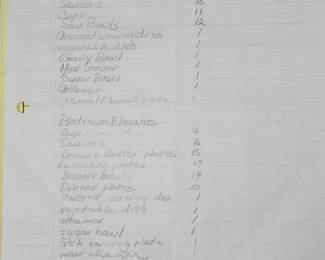 Saucers 13
Cups 11
Soup Bowls 12
Covered serving dish 1
vegetable dish 1
Gravy Bowl 1
1
Sugar Bowl 1
Creamer 1
1 small meat plate 1
Platinum Elegance
Cup 16
Saucers 16
Bread & Butter plates 15
Luncheon plates 13
Dessert bowls 14
Dinner plates 10
Covered serving dish 1
vegetable dish 1
creamer 1
sugar bowl 1
serving plate 1
1